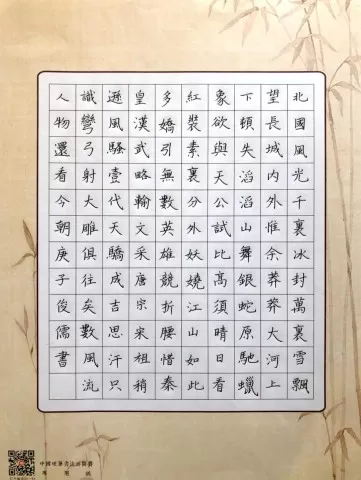 北國風光千裏冰封萬裏雪飄
望長城內外惟余莽莽大河上
下頓失滔滔山舞銀蛇原馳蠟
象欲與天公試比高須晴日看
紅裝素裹分外妖嬈江山如此
多嬌引無數英雄競折腰惜秦
皇漢武略輸文采唐宗宋祖稍
遜風騷壹代天驕成吉思汗只
識彎弓射大雕俱往矣數風流
人物還看今朝庚子俊儒書
中國硬筆書法